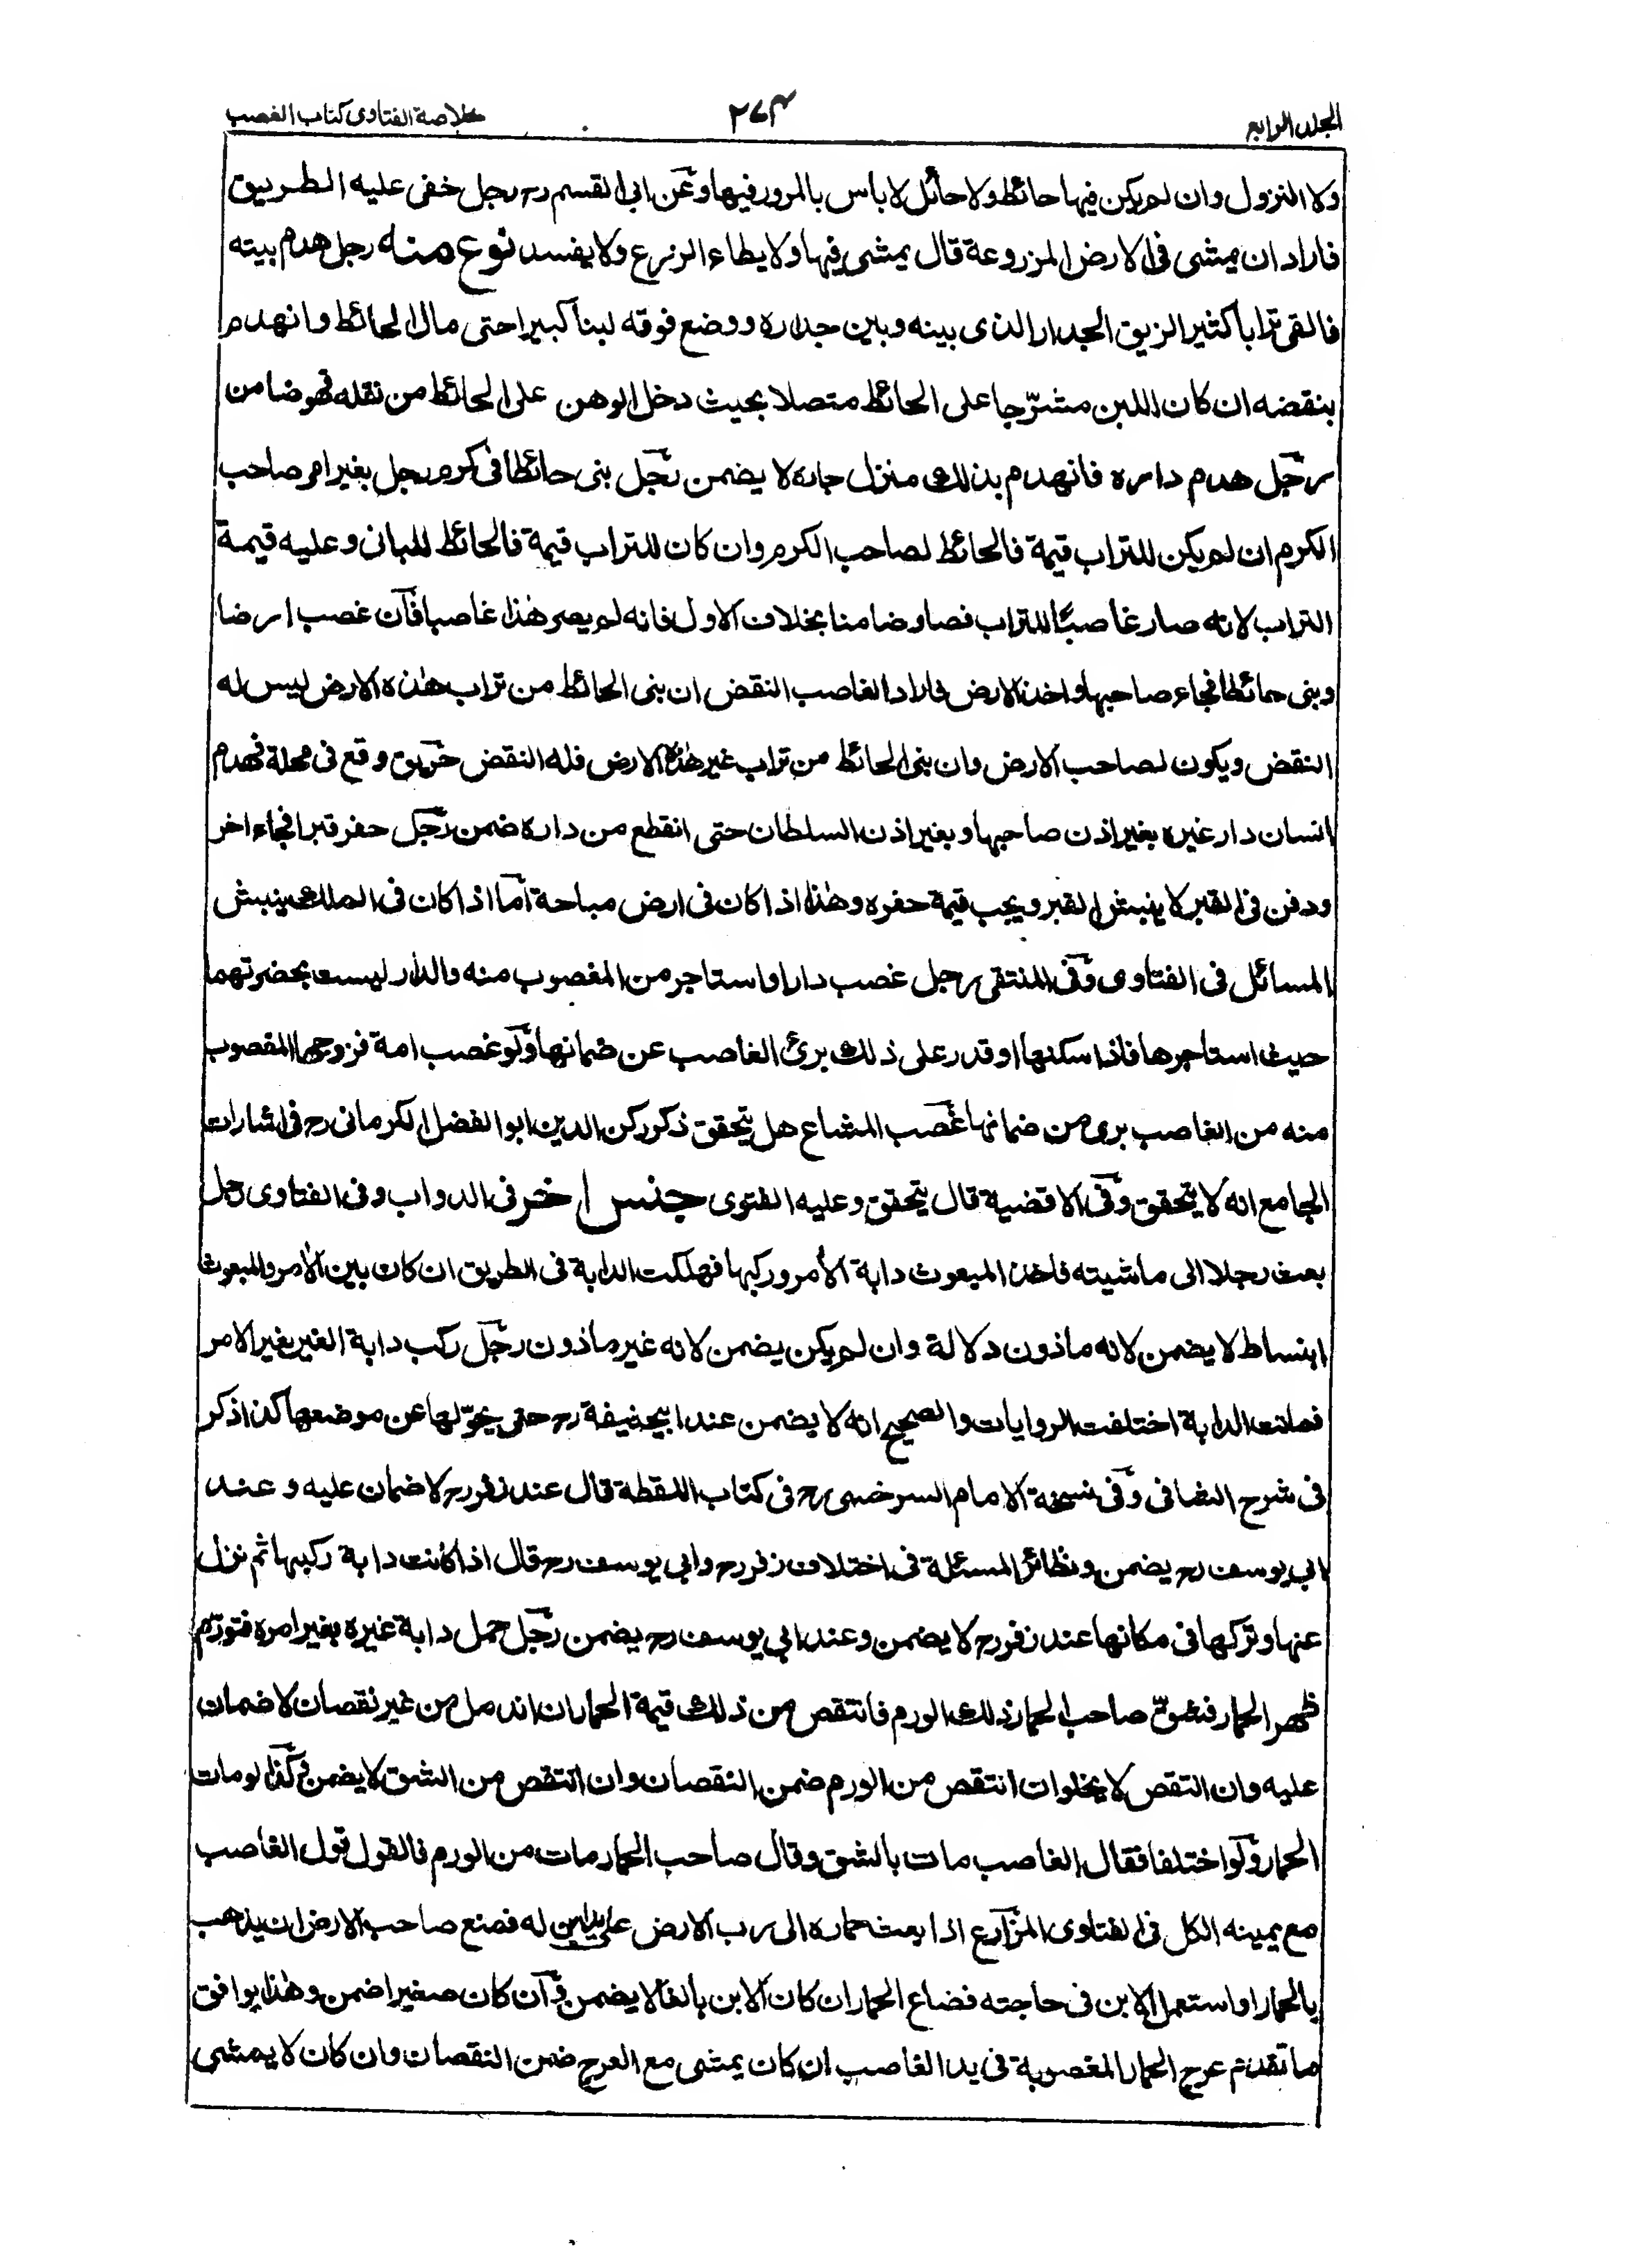 المجلد الرابع
٢٧٣
خلاصة الفتاوى كتاب الغصب
ولا النزول وان لم يكن فيها حائط ولا حائل لا باس بالمرور فيها وعن ابى القسم رح رجل خفى عليه الطريق
فاراد ان يمشى فى الارض المزروعة قال يمشى فيها ولا يطاء الزرع ولا يفسد نوع منه رجل هدم بيته
فالقى ترابا كثيرا لزيق الجدار الذى بينه وبين جداره ووضع فوقه لبنا كبيرا حتى مال الحائط وانهدم
بنقضه ان كان اللبن مشرّجا على الحائط متصلا بحيث دخل الوهن على الحائط من نقله فهو ضامن
رجل هدم داره فانهدم بذلك منزل جاره لا يضمن رجل بنى حائطا فى كرم رجل بغير امر صاحب
الكرم ان لم يكن للتراب قيمة فالحائط لصاحب الكرم وان كان للتراب قيمة فالحائط للبانى وعليه قيمة
التراب لانه صار غاصبًا للتراب فصار ضامنا بخلاف الاول فانه لم يصر هذا غاصبا فآن غصب ارضا
وبنى حائطا فجاء صاحبها واخذ الارض فاراد الغاصب النقض ان بنى الحائط من تراب هذه الارض ليس له
النقض ويكون لصاحب الارض وان بنى الحائط من تراب غير هذه الارض فله النقض حريق وقع فى محلة فهدم
انسان دار غيره بغير اذن صاحبها وبغير اذن السلطان حتى انقطع من داره ضمن رجل حفر قبرا فجاء اخر
ودفن فى القبر لا ينبش القبر ويجب قيمة حفره وهذا اذا كان فى ارض مباحة اما اذا كان فى الملك ينبش
المسائل فى الفتاوى وفى المنتقى رجل غصب دارا واستاجر من المغصوب منه والدار ليست بحضرتهما
حيث استاجرها فاذا سكنها او قدر على ذلك برئ الغاصب عن ضمانها ولو غصب امة فزوجها المغصوب
منه من الغاصب برى من ضمانها غصب المشاع هل يتحقق ذكر ركن الدين ابو الفضل الكرمانى رح فى اشارات
الجامع انه لا يتحقق وفى الاقضية قال يتحقق وعليه الفتوى جنس اخر فى الدواب وفى الفتاوى رجل
بعث رجلا الى ماشيته فاخذ المبعوث دابة الآمر وركبها فهلكت الدابة فى الطريق ان كان بين الآمر والمبعوث
انبساط لا يضمن لانه ماذون دلالة وان لم يكن يضمن لانه غير ماذون رجل ركب دابة الغير بغير الامر
فماتت الدابة اختلفت الروايات والصحيح انه لا يضمن عند ابيحنيفة رح حتى يحوّلها عن موضعها كذا ذكر
فى شرح الصفافى وفى نسخة الامام السرخسى رح فى كتاب اللقطة قال عند زفر رح لا ضمان عليه وعند
ابى يوسف رح يضمن ونظائر المسئلة فى اختلاف زفر رح وابى يوسف رح قال اذا كانت دابة ركبها ثم نزل
عنها وتركها فى مكانها عند زفر رح لا يضمن وعند ابى يوسف رح يضمن رجل حمل دابة غيره بغير امره فتورّم
ظهر الحمار فشقّ صاحب الحمار ذلك الورم فانتقص من ذلك قيمة الحمار ان اندمل من غير نقصان لا ضمان
عليه وان انتقص لا يخلو ان انتقص من الورم ضمن النقصان وان انتقص من الشق لا يضمن وكذا لو مات
الحمار ولو اختلفا فقال الغاصب مات بالشق وقال صاحب الحمار مات من الورم فالقول قول الغاصب
مع يمينه الكل فى الفتاوى المزارع اذا بعث حماره الى رب الارض على يد ابن له فصنع صاحب الارض ان يذهب
بالحمار او استعمل الابن فى حاجته فضاع الحمار ان كان الابن بالغا لا يضمن وآن كان صغيرا ضمن وهذا يوافق
ما تقدم عرج الحمار المغصوبة فى يد الغاصب ان كان يمشى مع العرج ضمن النقصان وان كان لا يمشى